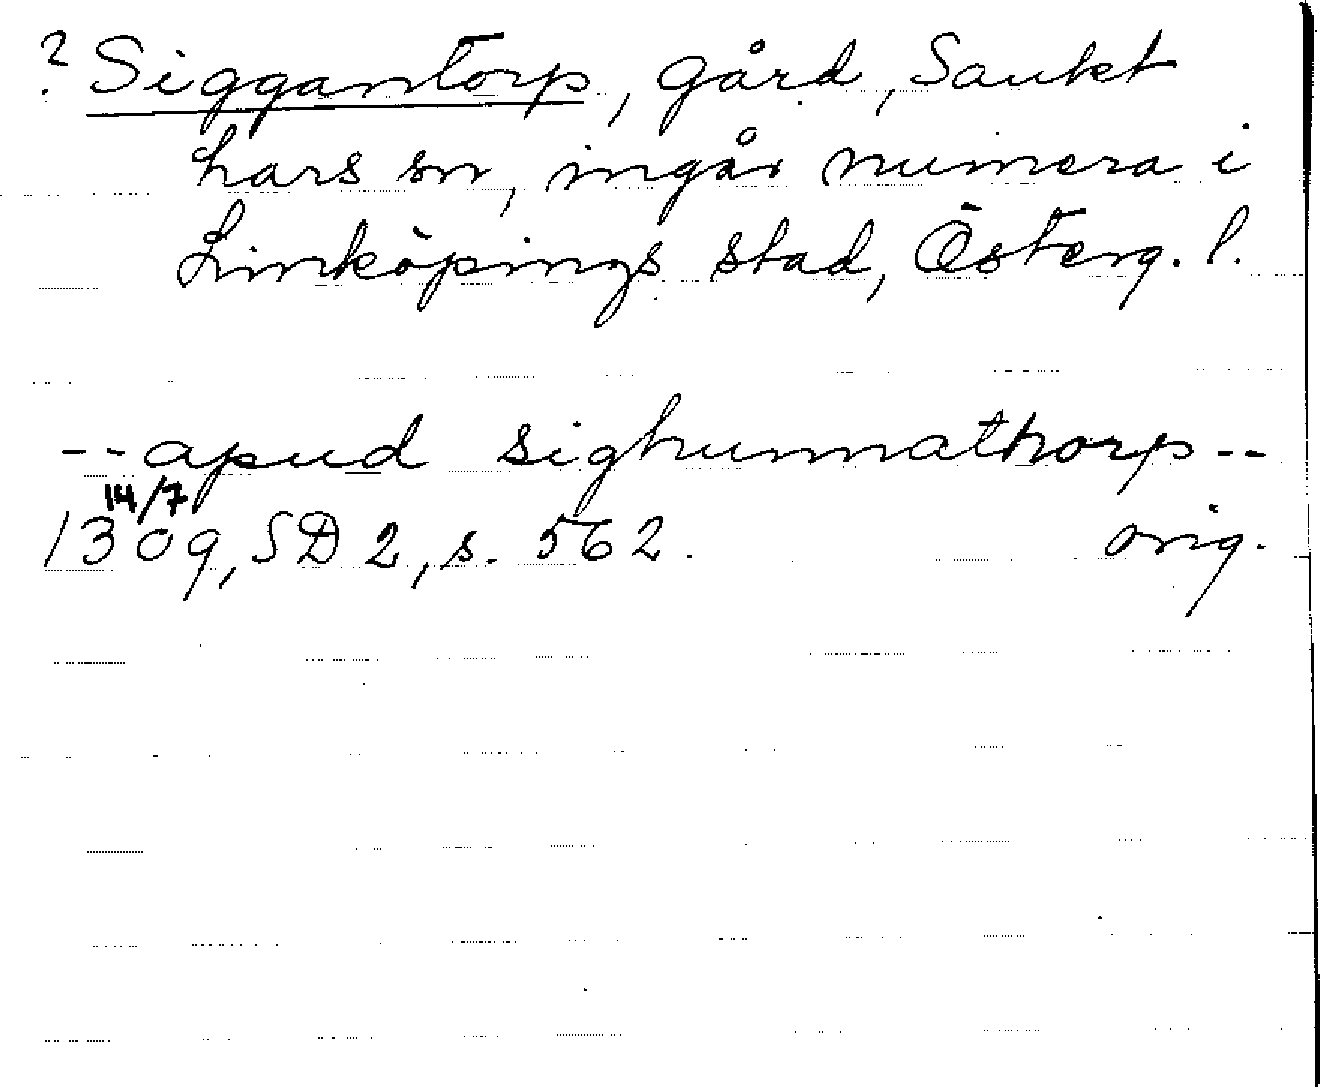 ? Siggantorp, gård, Sankt
Lars sn, ingår numera i
Linköpings stad, Österg. l.
--apud sighunnathorp--
14/7
1309, SD 2, s. 562. orig.